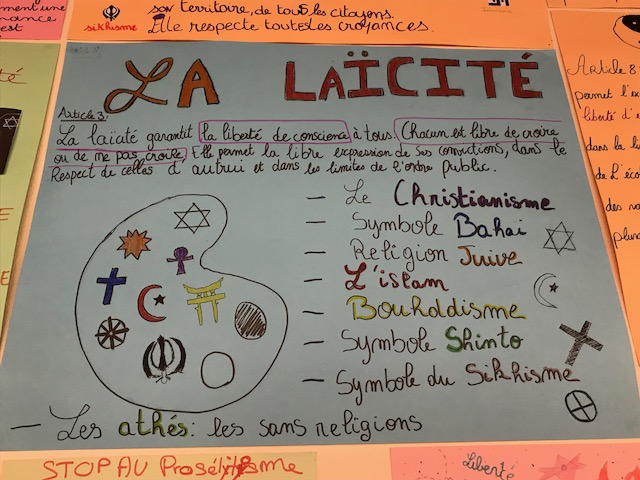 son territoire, de tous les citoyens.
sikhisme Elle respecte toutes les croyances.
LA LAÏCITÉ
Article 3:
La laïcité garantit la liberté de conscience à tous. Chacun est libre de croire
ou de ne pas croire. Elle permet la libre expression de ses convictions, dans le
Respect de celles d'autrui et dans les limites de l'ordre public.
— Le Christianisme
— Symbole Bahai
— Religion Juive
— L'islam
— Bouhddisme
— Symbole Shinto
— Symbole du Sikhisme
— Les athés: les sans religions
STOP AU Prosélytisme
Liberté
Article 8
permet l'ex
liberté d'e
dans la li
de L'éco
des va
plur